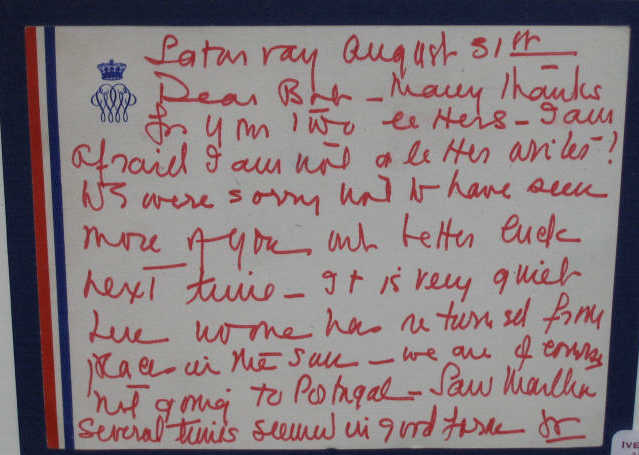 Saturday August 31st
Dear Bob - Many thanks
for your two letters - I am
afraid I am not a letter writer!
We were sorry not to have seen
more of you but better luck
next time - It is very quiet
here no one has returned from
places in the sun - we are of course
not going to Portugal - Saw Martha
several times seemed in good form
IVE